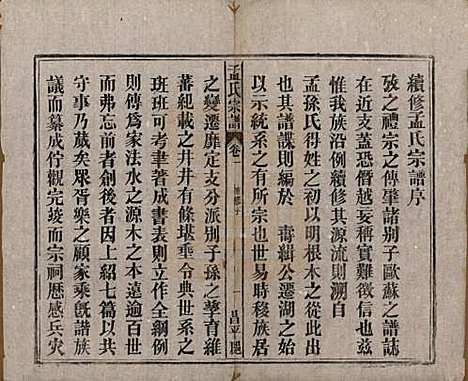 續修孟氏宗譜序
攷之禮宗之傳肇諸別子歐蘇之譜誌
在近支蓋恐僭越妄稱實難徵信也茲
惟我族沿例續修其源流則溯自
孟孫氏得姓之初以明根木之從此出
也其譜諜則編於 壽緝公遷湖之始
以示統系之有所宗也世易時移族居
孟氏宗譜 卷一
一 昌平𨞬
之變遷靡定支分派別子孫之孳育維
蕃紀載之井井有條堪垂令典世系之
班班可考聿著成書表則立作全綱例
則傳為家法水之源木之本遠逾百世
而弗忘前者創後者因上紹七篇以共
守事乃蕆矣眾胥樂之顧家乘旣諧族
議而纂成佇觀完竣而宗祠歷感兵灾